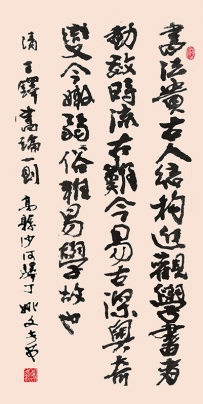 書法貴古人结构近觀學書者
動效時流古難今易古深奥奇
變今嫩弱俗雅易學故也
清王鐸書論一則高縣沙河驛丁姚文